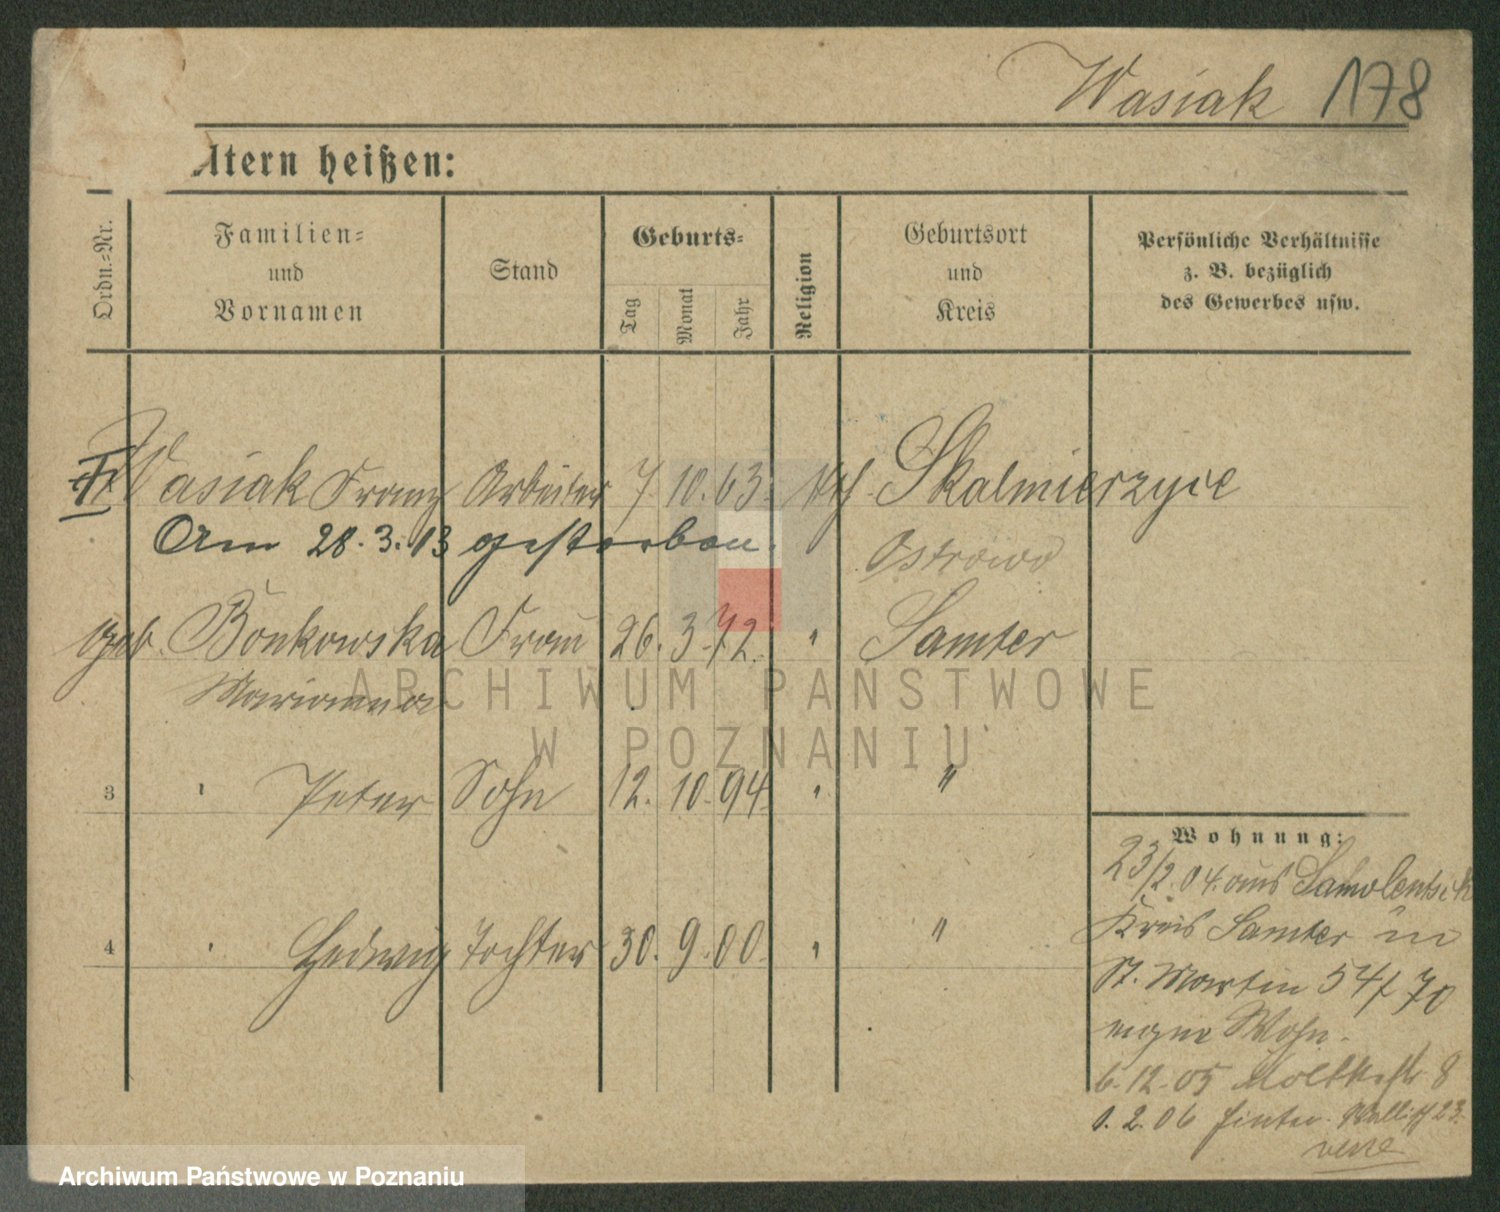 Wasiak 178
ltern heißen:
Ordn.-Nr.
Familien-
und
Vornamen
Stand
Geburts-
Tag
Monat
Jahr
Religion
Geburtsort
und
Kreis
Persönliche Verhältnisse
z. B. bezüglich
des Gewerbes usw.
Wasiak Franz Arbeiter 7. 10. 63. Skalmierzyce
Am 28.3.13 gestorben. Ostrowo
geb. Bonkowska Frau 26. 3. 72. " Samter
Marianna
3 " Peter Sohn 12. 10. 94. " "
4 " Hedwig Tochter 30. 9. 00. " "
Wohnung:
23/2. 04. aus
Kreis Samter in
St. Martin 54/70
eigne Wohn.
6.12.05 Moltkestr 8
1. 2. 06 23.
ARCHIWUM PAŃSTWOWE
W POZNANIU
Archiwum Państwowe w Poznaniu